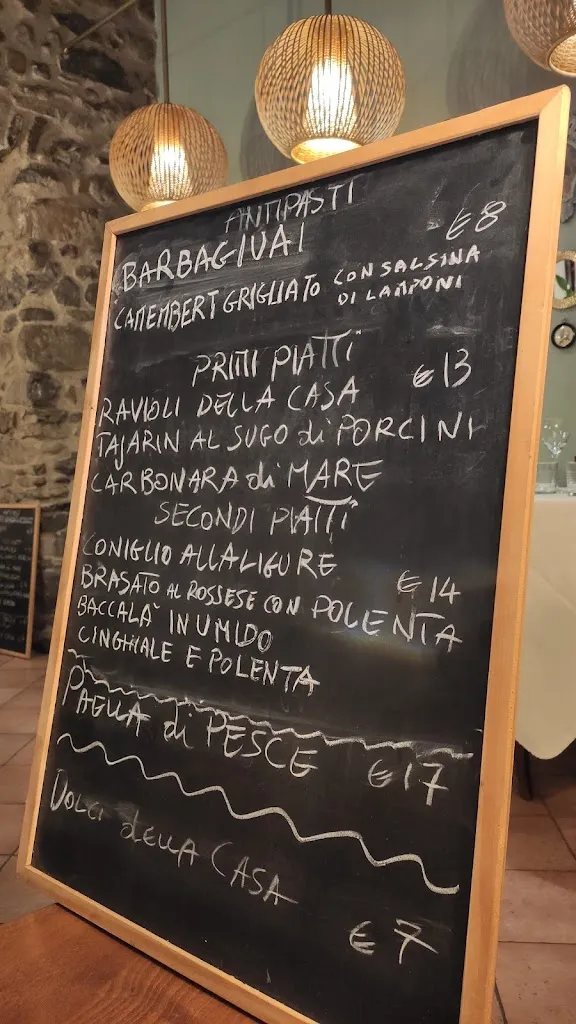 ANTIPASTI
BARBAGIUAI €8
CAMEMBERT GRIGLIATO CON SALSINA
DI LAMPONI
PRIMI PIATTI
€13
RAVIOLI DELLA CASA
TAJARIN AL SUGO di PORCINI
CARBONARA di MARE
SECONDI PIATTI
CONIGLIO ALLA LIGURE
€14
BRASATO AL ROSSESE CON POLENTA
BACCALA' IN UMIDO
CINGHIALE E POLENTA
PAELLA di PESCE €17
DOLCI della CASA
€7